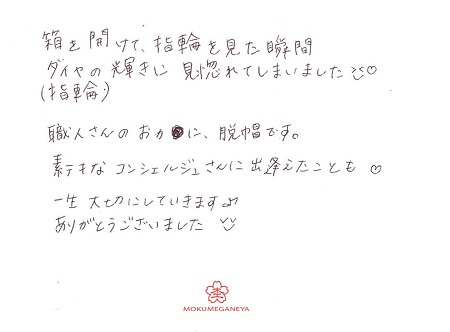 箱を開けて、指輪を見た瞬間
ダイヤの輝きに見惚れてしまいました♡
(指輪)
職人さんのおか に、脱帽です。
素テキなコンシェルジュさんに出逢えたことも♡
一生大切にしていきます♪
ありがとうございました
MOKUMEGANEYA